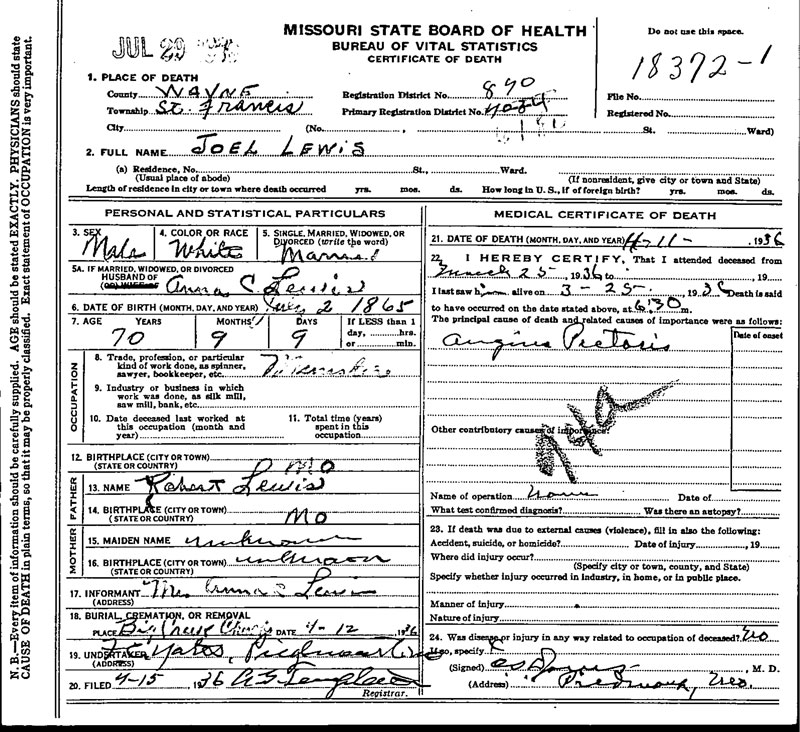 JUL 29
MISSOURI STATE BOARD OF HEALTH
BUREAU OF VITAL STATISTICS
CERTIFICATE OF DEATH
Do not use this space.
18372-1
1. PLACE OF DEATH
County WAYNE
Registration District No. 890
File No.
Township St. Francis
Primary Registration District No.
Registered No.
City (No. , St. Ward)
2. FULL NAME JOEL LEWIS
(a) Residence, No. St., Ward.
(Usual place of abode) (If nonresident, give city or town and State)
Length of residence in city or town where death occurred yrs. mos. ds. How long in U. S., if of foreign birth? yrs. mos. ds.
PERSONAL AND STATISTICAL PARTICULARS
3. SEX Male
4. COLOR OR RACE White
5. SINGLE, MARRIED, WIDOWED, OR DIVORCED (write the word) Married
5A. IF MARRIED, WIDOWED, OR DIVORCED
HUSBAND OF Anna C Lewis
(OR) WIFE OF
6. DATE OF BIRTH (MONTH, DAY, AND YEAR) July 2 1865
7. AGE YEARS MONTHS DAYS If LESS than 1
70 9 9 day, hrs.
or min.
OCCUPATION
8. Trade, profession, or particular
kind of work done, as spinner,
sawyer, bookkeeper, etc.
9. Industry or business in which
work was done, as silk mill,
saw mill, bank, etc.
10. Date deceased last worked at
this occupation (month and
year)
11. Total time (years)
spent in this
occupation
12. BIRTHPLACE (CITY OR TOWN)
(STATE OR COUNTRY) MO
FATHER
13. NAME Robert Lewis
14. BIRTHPLACE (CITY OR TOWN)
(STATE OR COUNTRY) MO
MOTHER
15. MAIDEN NAME unknown
16. BIRTHPLACE (CITY OR TOWN) unknown
(STATE OR COUNTRY)
17. INFORMANT Mrs Anna C Lewis
(ADDRESS)
18. BURIAL, CREMATION, OR REMOVAL
PLACE DATE 4-12 1936
19. UNDERTAKER Yates, Piedmont
(ADDRESS)
20. FILED 4-15 1936
Registrar.
MEDICAL CERTIFICATE OF DEATH
21. DATE OF DEATH (MONTH, DAY, AND YEAR) 4-11- 1936
22. I HEREBY CERTIFY, That I attended deceased from
March 25, 1936, to , 19
I last saw him alive on 3-25-, 1936 Death is said
to have occurred on the date stated above, at 6:30 m.
The principal cause of death and related causes of importance were as follows:
Date of onset
Angina Pectoris
Other contributory causes of importance:
Name of operation None Date of
What test confirmed diagnosis? Was there an autopsy?
23. If death was due to external causes (violence), fill in also the following:
Accident, suicide, or homicide? Date of injury , 19
Where did injury occur?
(Specify city or town, county, and State)
Specify whether injury occurred in industry, in home, or in public place.
Manner of injury
Nature of injury
24. Was disease or injury in any way related to occupation of deceased? No
If so, specify
(Signed) , M. D.
(Address) Piedmont, Mo.
N. B.—Every item of information should be carefully supplied. AGE should be stated EXACTLY. PHYSICIANS should state
CAUSE OF DEATH in plain terms, so that it may be properly classified. Exact statement of OCCUPATION is very important.